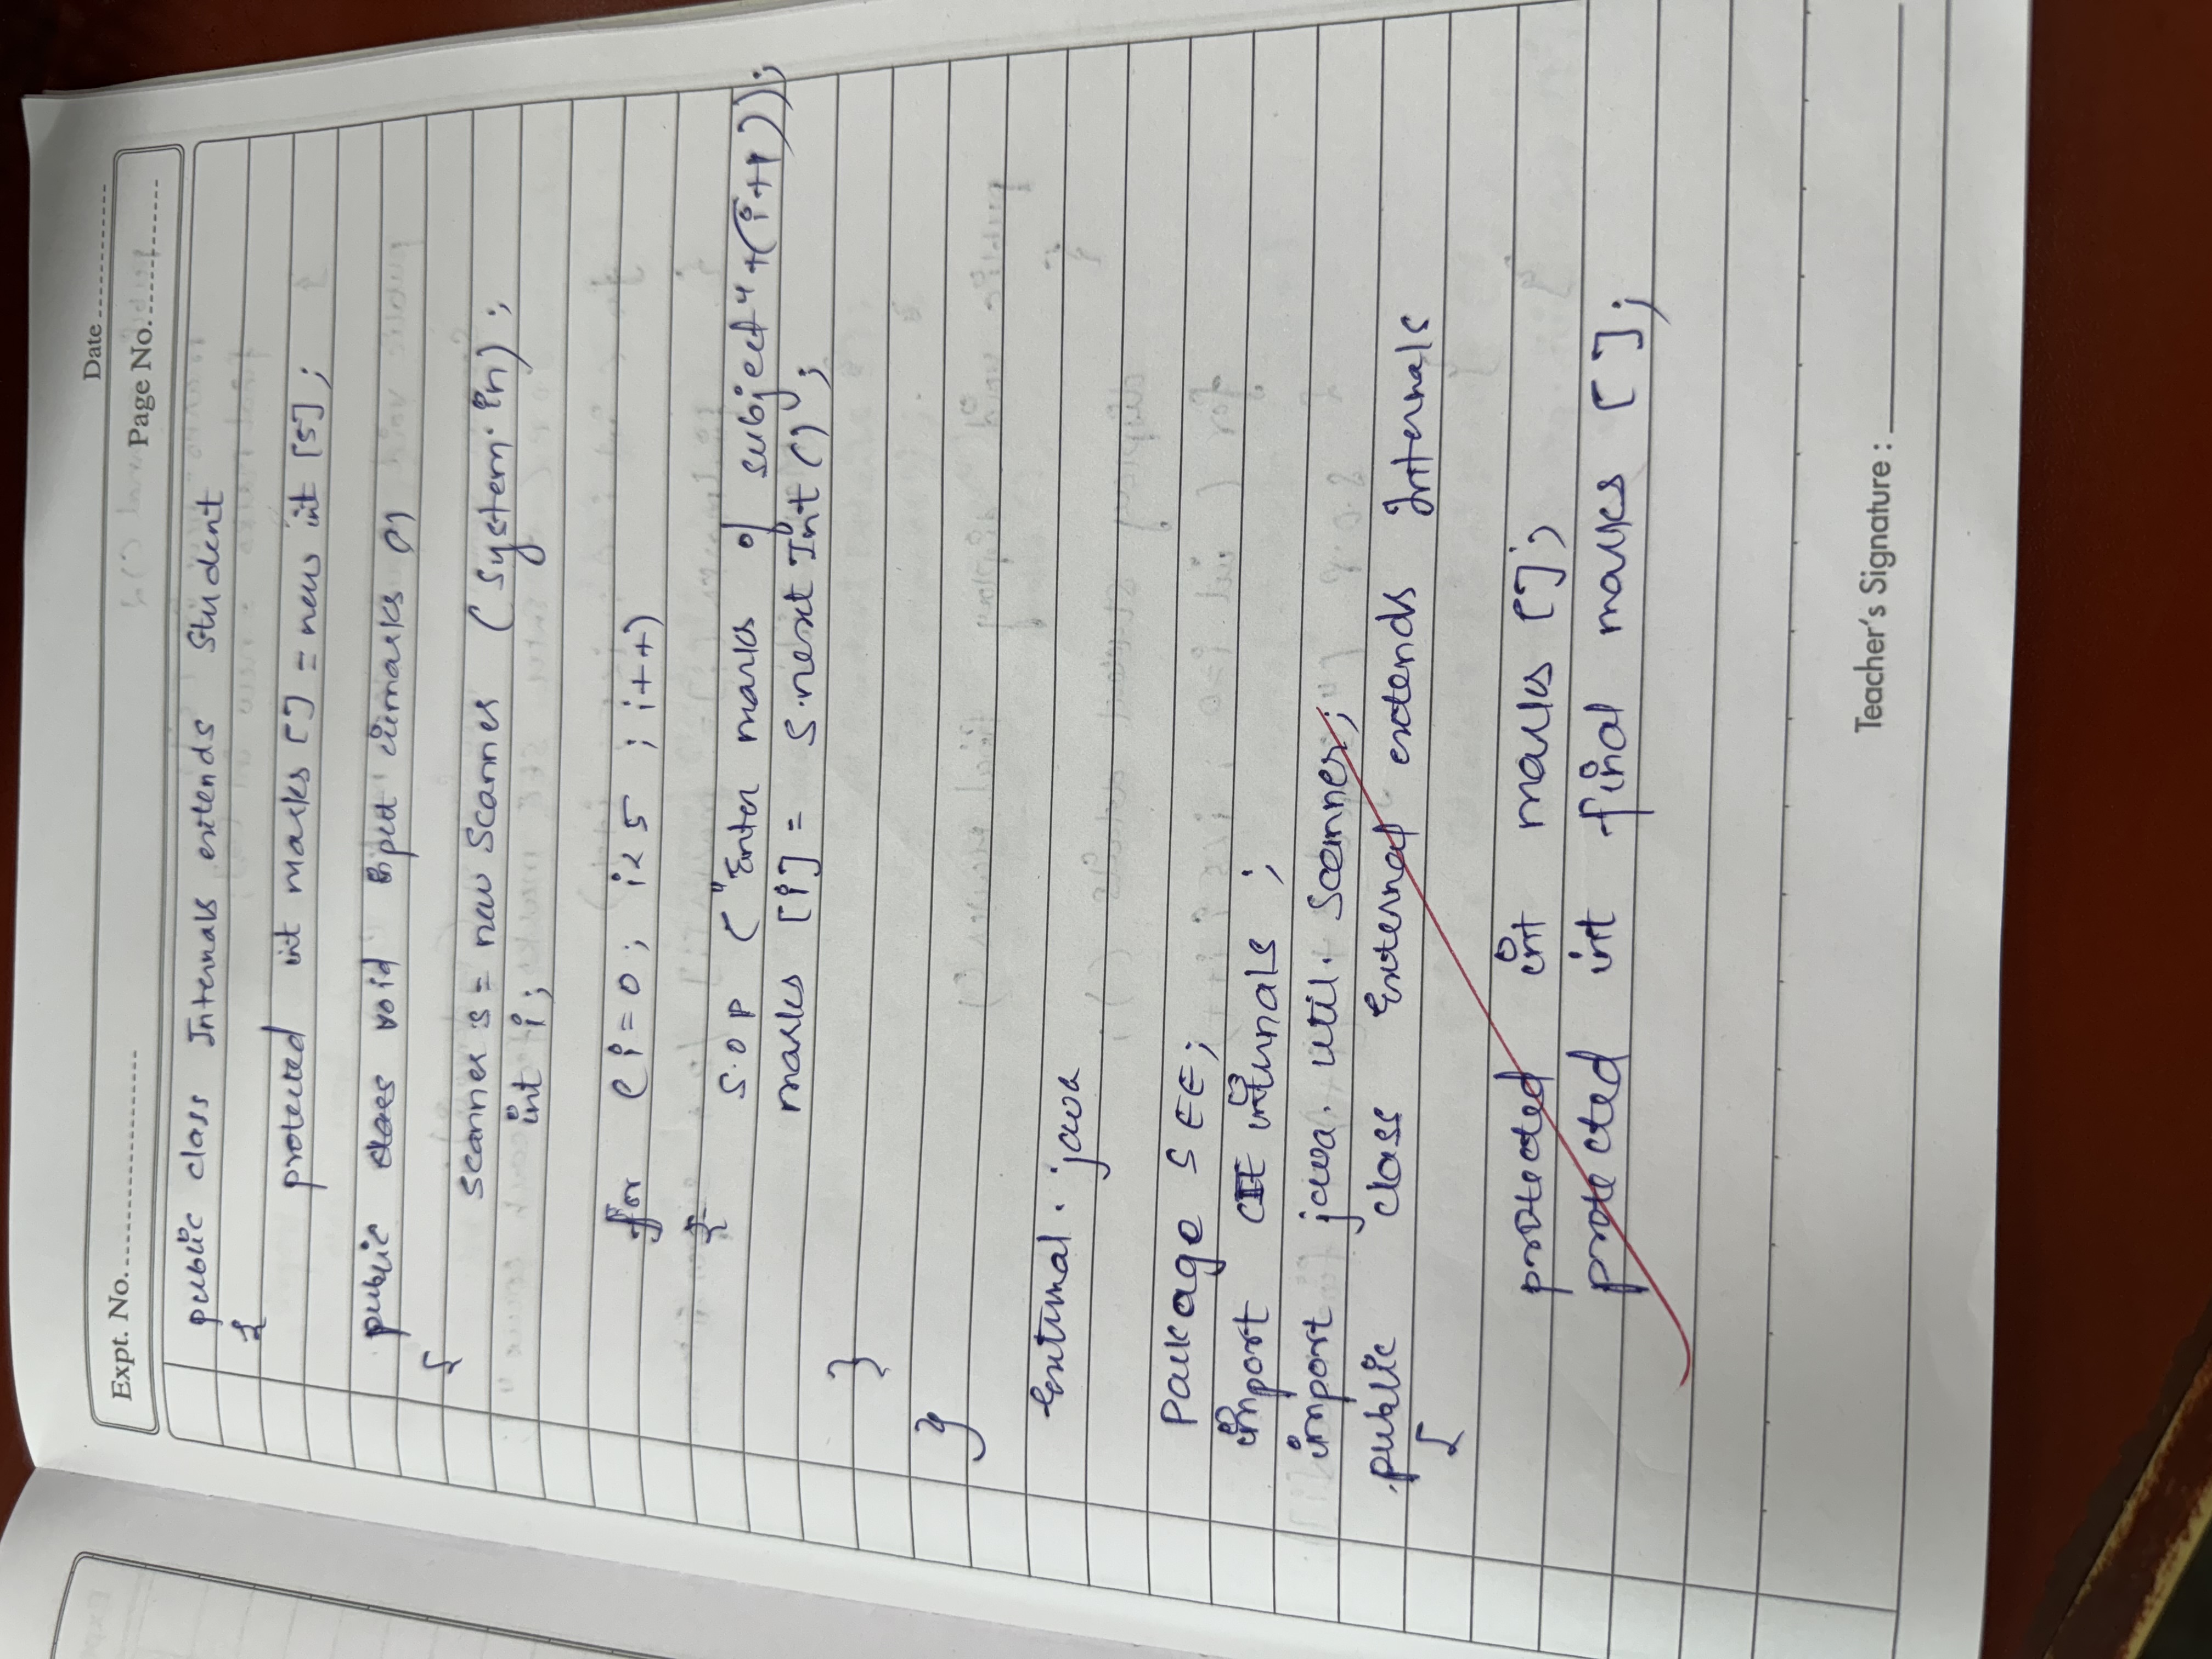 Date
Expt. No.
Page No.
public class Internals extends Student
{
protected int marks [] = new int [5];
public class void Input ciemarks ()
{
Scanner s = new Scanner (System.in);
int i;
for (i=0; i<5 ; i++)
{
S.O.P ("Enter marks of subject"+(i+1));
marks [i] = s.nextInt();
}
}
External.java
Package SEE;
import CIE internals ;
import java.util.Scanner;
public class External extends Internals
{
protected int marks [];
protected int final marks [];
Teacher's Signature :